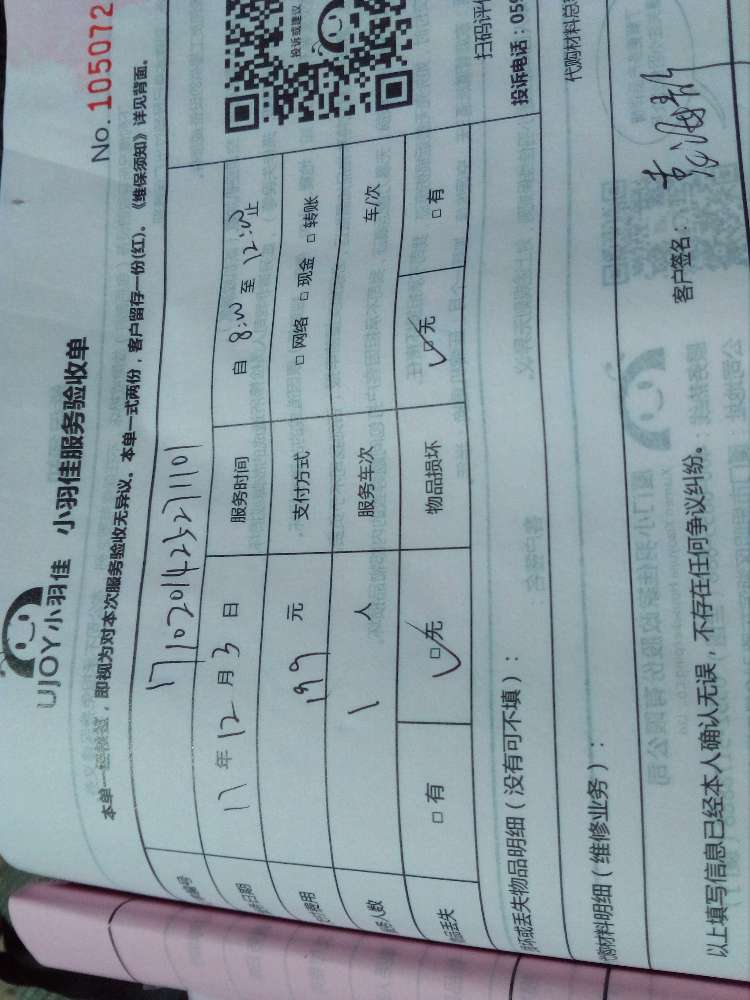 No. 105072
投诉或建议
UJOY小羽佳 小羽佳服务验收单
本单一经签签，即视为对本次服务验收无异议。本单一式两份，客户留存一份(红)。《维保须知》详见背面。
编号 17102014252711101
日期 17 年 12 月 3 日 服务时间 自 8:00 至 12:00 止
费用 199 元 支付方式 □ 网络 □ 现金 □ 转账
人数 1 人 服务车次 车/次
丢失 □ 有 □ 无 物品损坏 □ 无 □ 有
扫码评
投诉电话：059
坏或丢失物品明细（没有可不填）：
代购材料总
购材料明细（维修业务）：
以上填写信息已经本人确认无误，不存在任何争议纠纷。 客户签名：